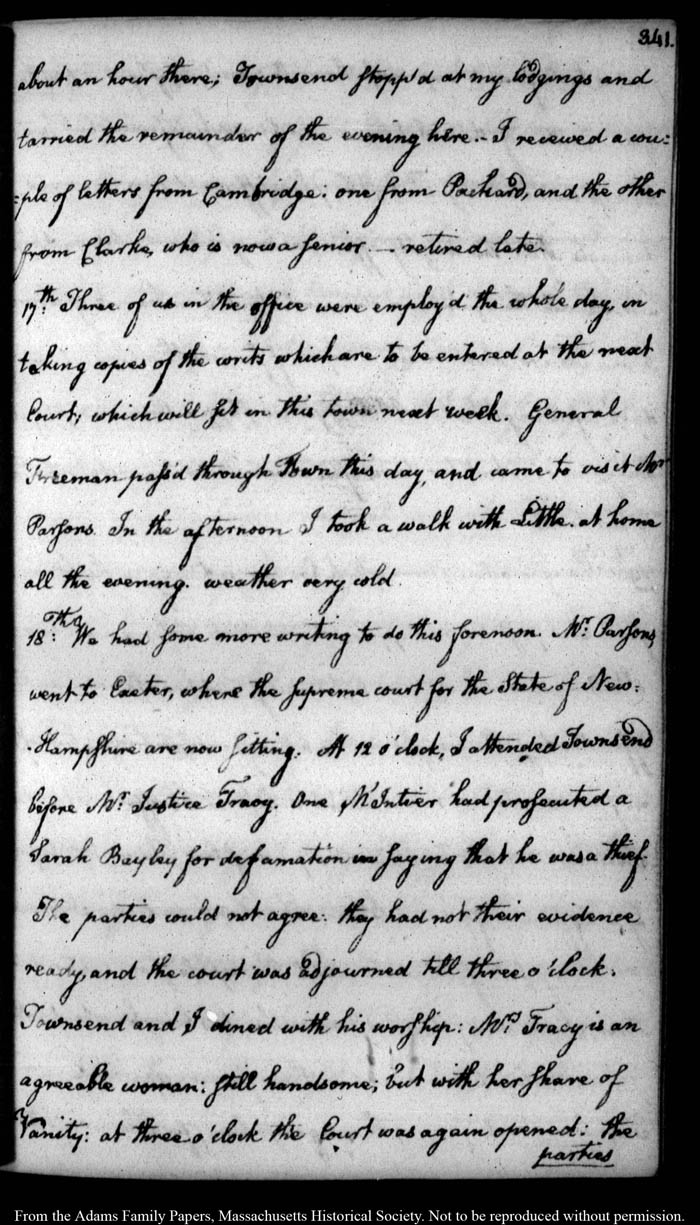 341.
about an hour there; Townsend stopp'd at my lodgings and
tarried the remainder of the evening here. - I received a cou=
=ple of letters from Cambridge: one from Packard, and the other
from Clarke, who is now a senior — retired late.
17th: Three of us in the office were employ'd the whole day, in
taking copies of the writs which are to be entered at the next
Court, which will sit in this town next week. General
Freeman pass'd through Town this day, and came to visit Mr
Parsons. In the afternoon I took a walk with Little. at home
all the evening. weather very cold.
18th: We had some more writing to do this forenoon. Mr. Parsons,
went to Exeter, where the supreme court for the State of New=
-Hampshire are now sitting. At 12 o'clock, I attended Townsend
before Mr. Justice Tracy. One M'Intier had prosecuted a
Sarah Bayley for defamation in saying that he was a thief.
The parties could not agree: they had not their evidence
ready, and the court was adjourned till three o'clock.
Townsend and I dined with his worship: Mrs Tracy is an
agreeable woman: still handsome; but with her share of
Vanity: at three o'clock the Court was again opened: the
parties
From the Adams Family Papers, Massachusetts Historical Society. Not to be reproduced without permission.